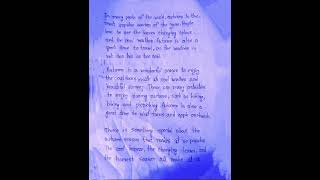 In many parts of the world, autumn is the
most popular season of the year. People
love to see the leaves changing colors
and the cool weather. Autumn is also a
good time to travel, as the weather is
not too hot or too cold.
Autumn is a wonderful season to enjoy
the outdoors with its cool weather and
beautiful scenery. There are many activities
to enjoy during autumn, such as hiking,
biking and picnicking. Autumn is also a
great time to visit farms and apple orchards.
There is something special about the
autumn season that makes it so popular.
The cool breeze, the changing leaves, and
the harvest season all make it a